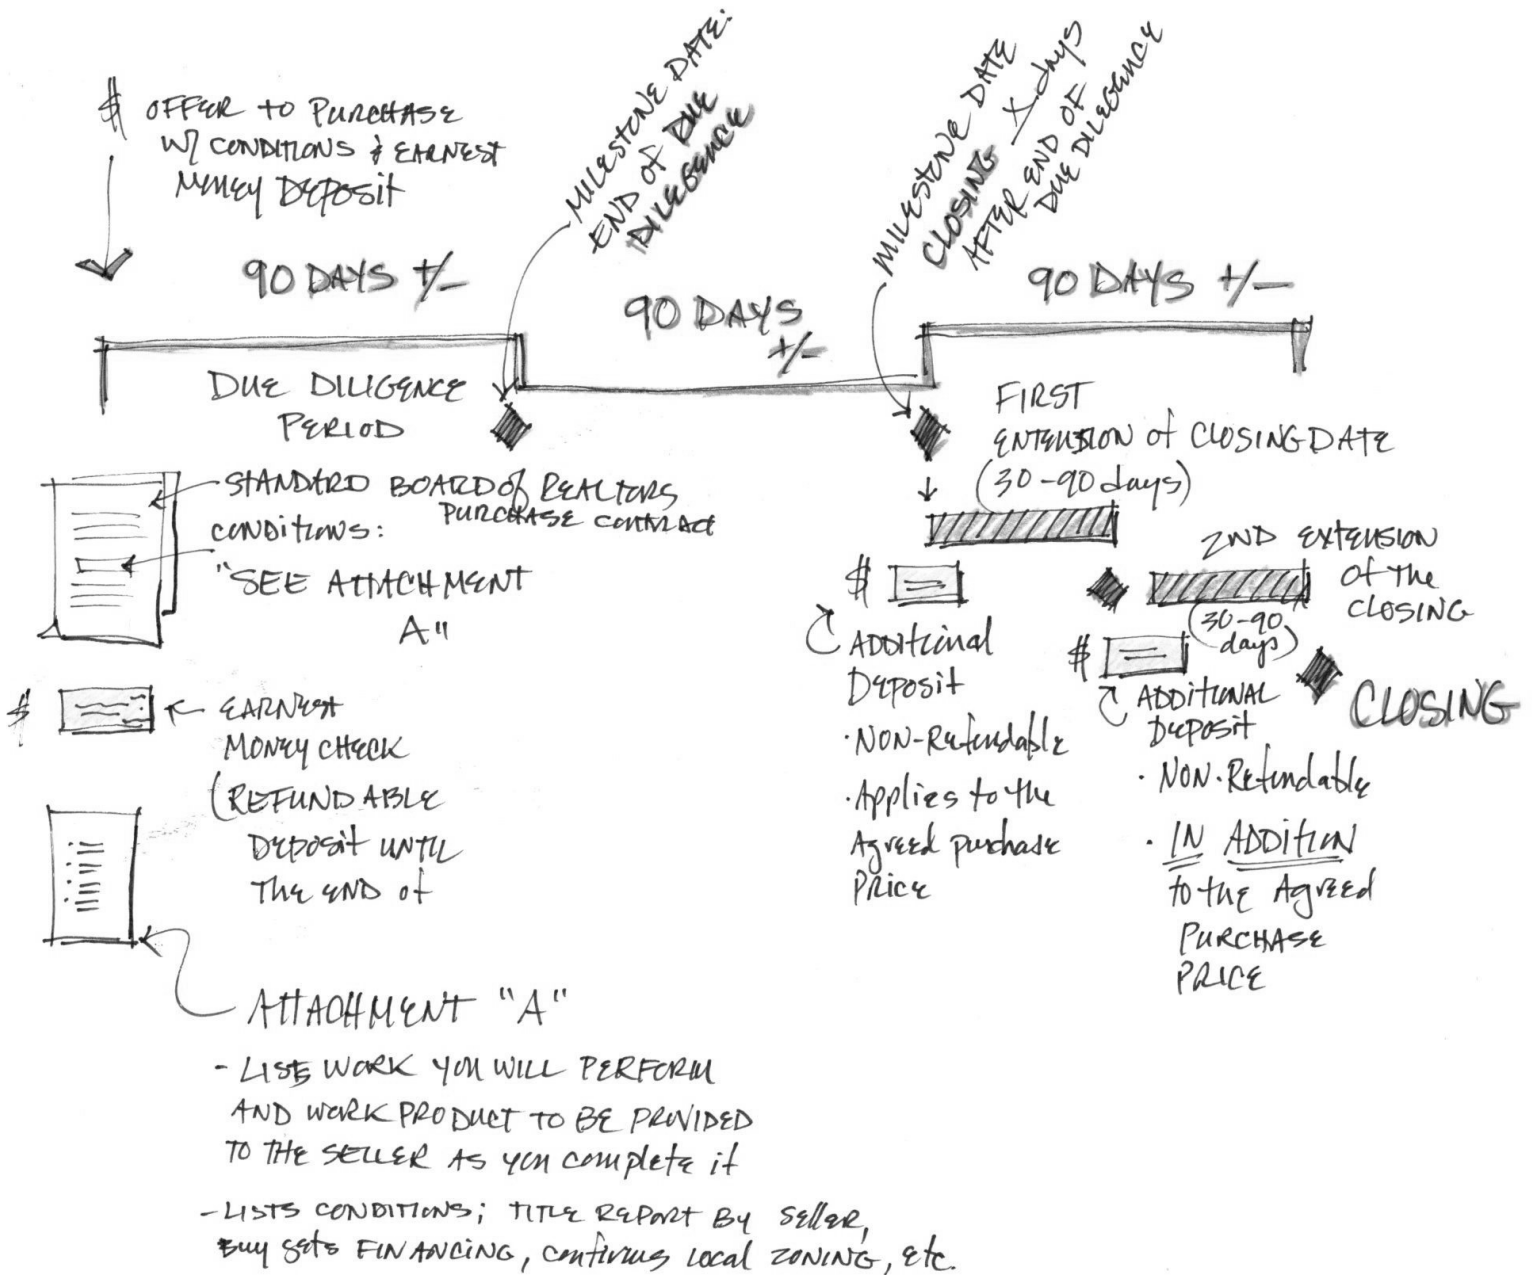 $ OFFER TO PURCHASE
W/ CONDITIONS & EARNEST
MONEY DEPOSIT
MILESTONE DATE:
END OF DUE
DILEGENCE
MILESTONE DATE
CLOSING X days
AFTER END OF
DUE DILEGENCE
90 DAYS +/-
90 DAYS
+/-
90 DAYS +/-
DUE DILIGENCE
PERIOD
STANDARD BOARD of REALTORS
PURCHASE CONTRACT
CONDITIONS:
"SEE ATTACHMENT
A"
$
EARNEST
MONEY CHECK
(REFUNDABLE
DEPOSIT UNTIL
THE END of
ATTACHMENT "A"
- LISTS WORK YOU WILL PERFORM
AND WORK PRODUCT TO BE PROVIDED
TO THE SELLER AS YOU COMPLETE IT
- LISTS CONDITIONS; TITLE REPORT BY SELLER,
BUY GETS FINANCING, CONFIRMS LOCAL ZONING, ETC.
FIRST
EXTENSION of CLOSING DATE
(30-90 days)
$
ADDITIONAL
DEPOSIT
• NON-Refundable
• Applies to the
Agreed purchase
PRICE
2ND EXTENSION
of THE
CLOSING
(30-90
days)
$
ADDITIONAL
DEPOSIT
• NON-Refundable
• IN ADDITION
to the Agreed
PURCHASE
PRICE
CLOSING